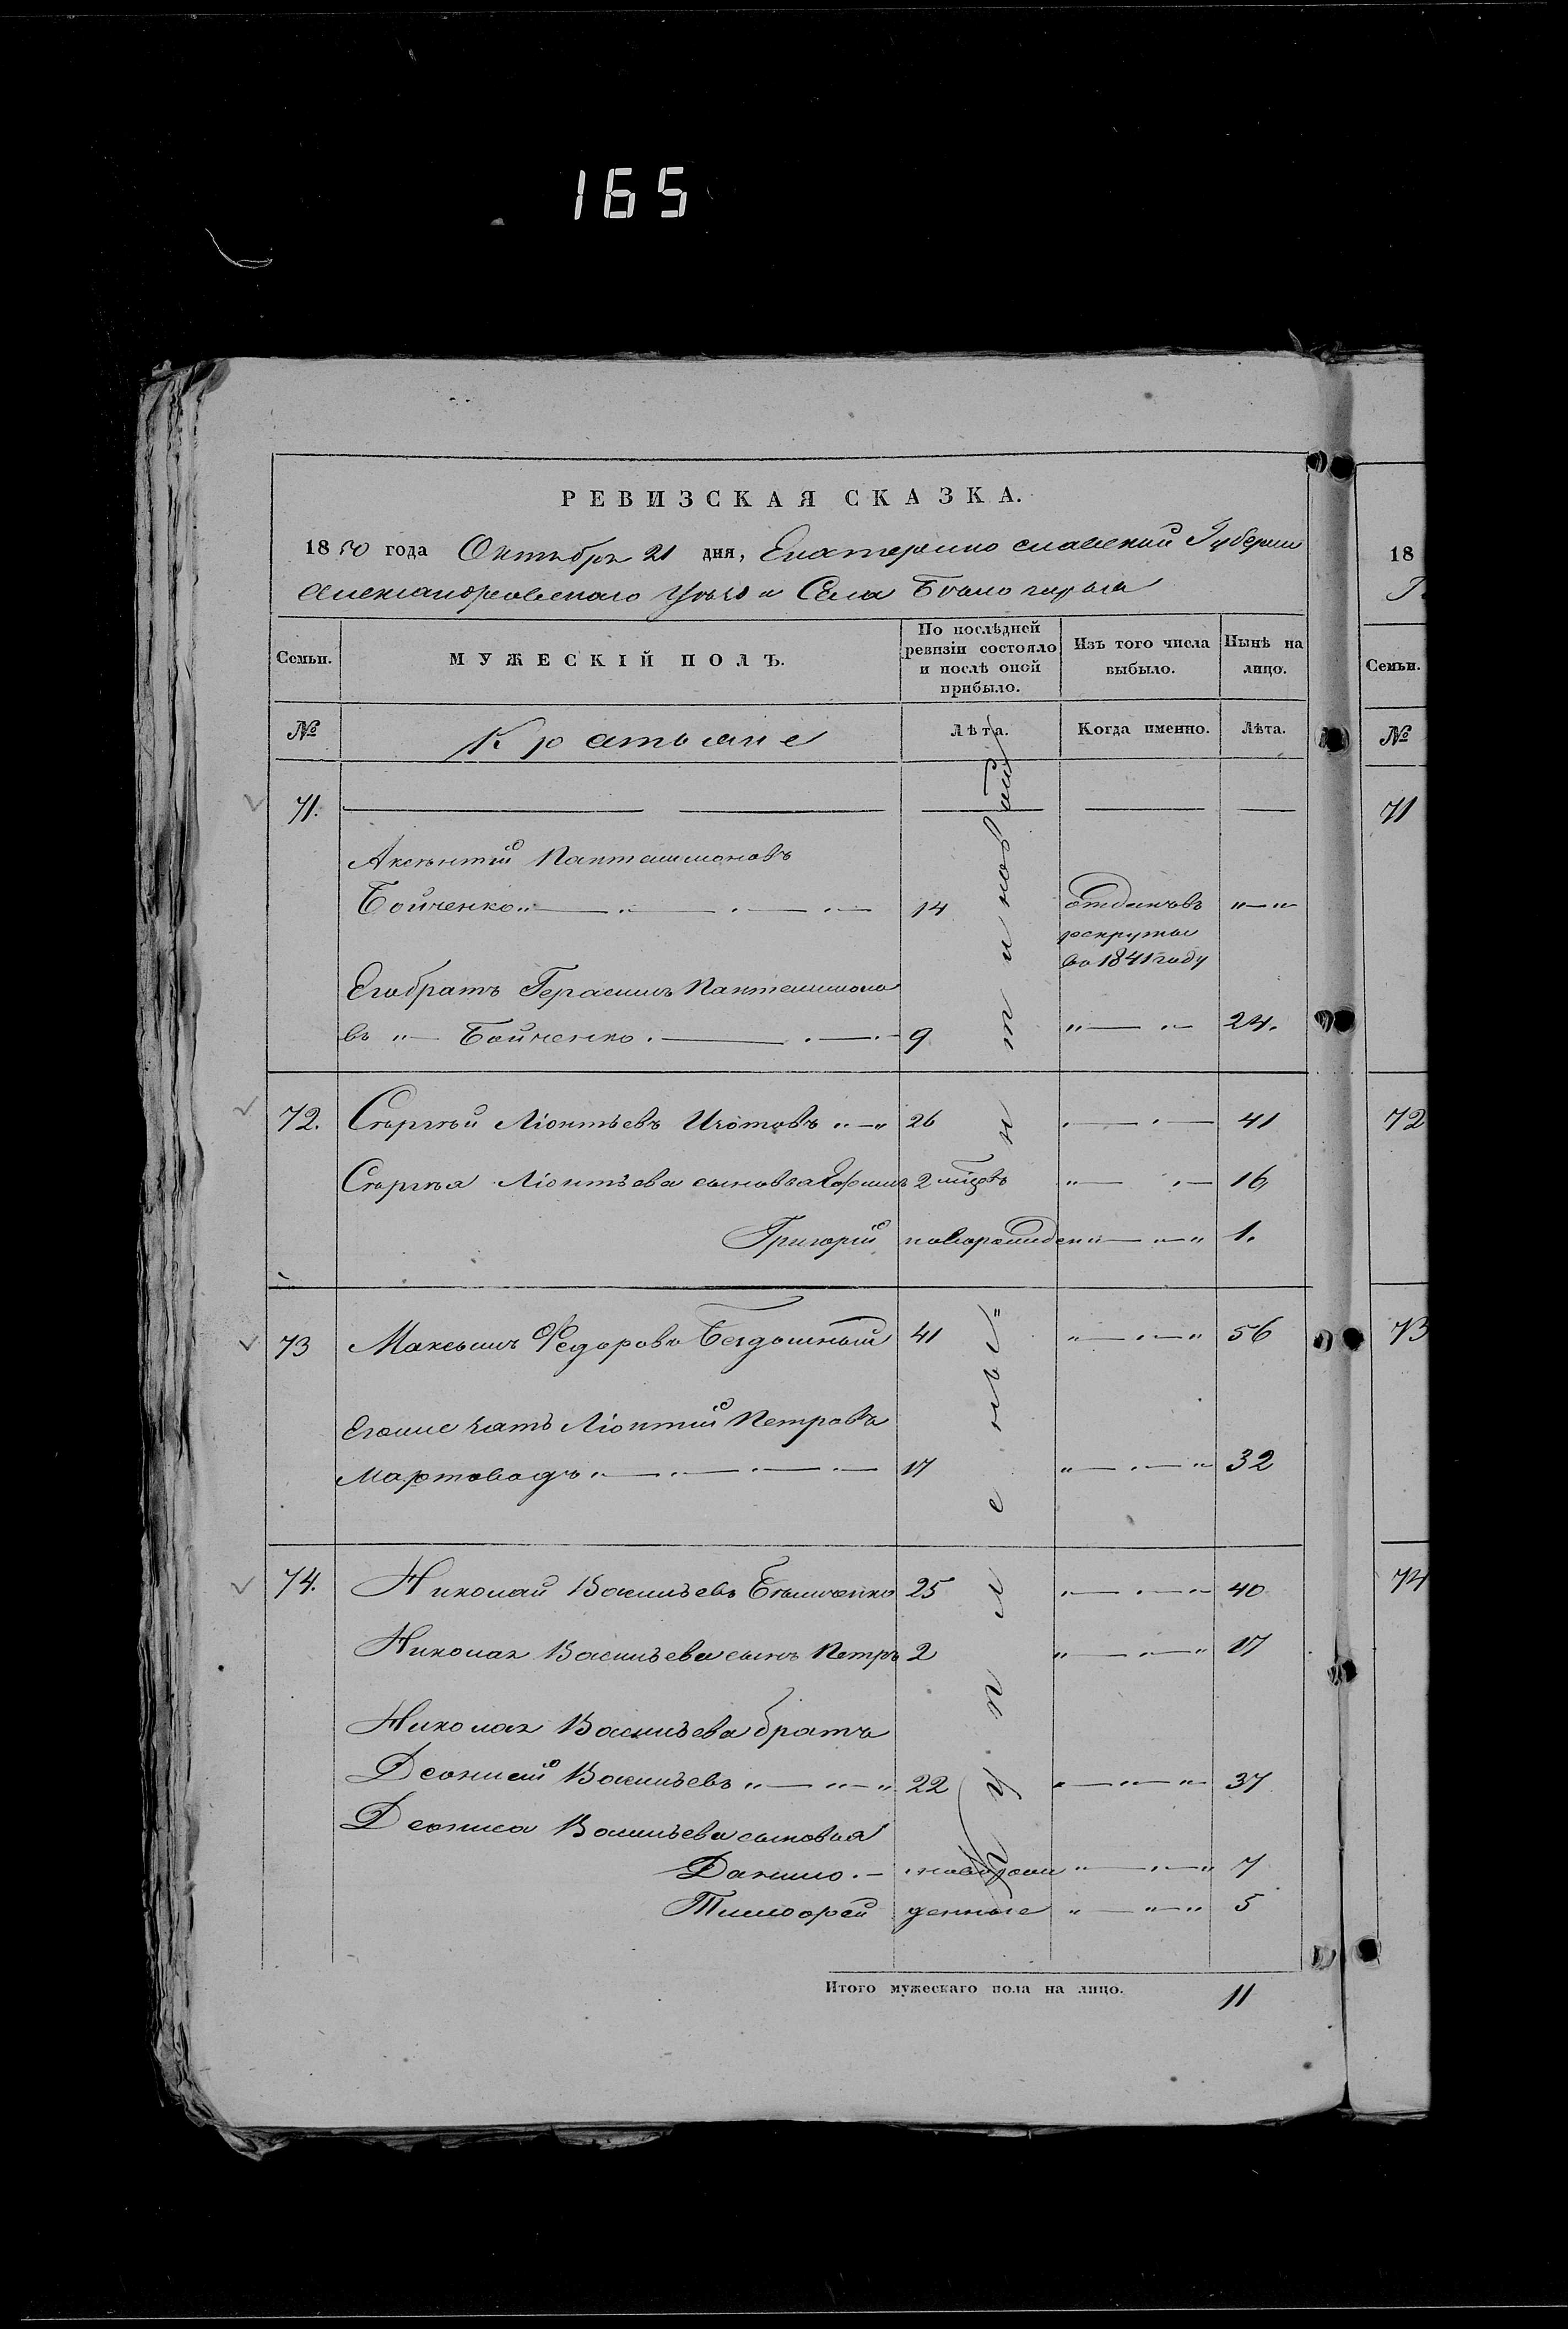 165
РЕВИЗСКАЯ СКАЗКА.
1850 года Октября 21 дня, Екатерино славской Губернии
Александровского Уѣзда Села Бѣлогорья
Семьи.
МУЖЕСКІЙ ПОЛЪ.
По послѣдней ревизіи состояло и послѣ оной прибыло.
Изъ того числа выбыло.
Нынѣ на лицо.
№
Лѣта.
Когда именно.
Лѣта.
71.
Аксентій Пантелимоновъ
Бойченко 14 отданъ въ
рекруты
во 1841 году
Его братъ Герасимъ Пантелимоно
въ Бойченко 9 24.
72. Сергѣй Ліонтьевъ Изотовъ 26 41
Сергѣя Ліонтьева сыновья 2 мѣсяц 16
Григорій новорожден 1.
73 Максимъ Федоровъ 41 56
Его зять Ліонтій Петровъ
Мартовадъ 17 32
74. Николай Васильевъ 25 40
Николая Васильева сынъ Петръ 2 17
Николая Васильева братъ
Деонисій Васильевъ 22 37
Деониса Васильева сыновья
Данило. новорож 7
Тимофей денные 5
Итого мужескаго пола на лицо. 11
18
Семьи.
№
71
72
73
74